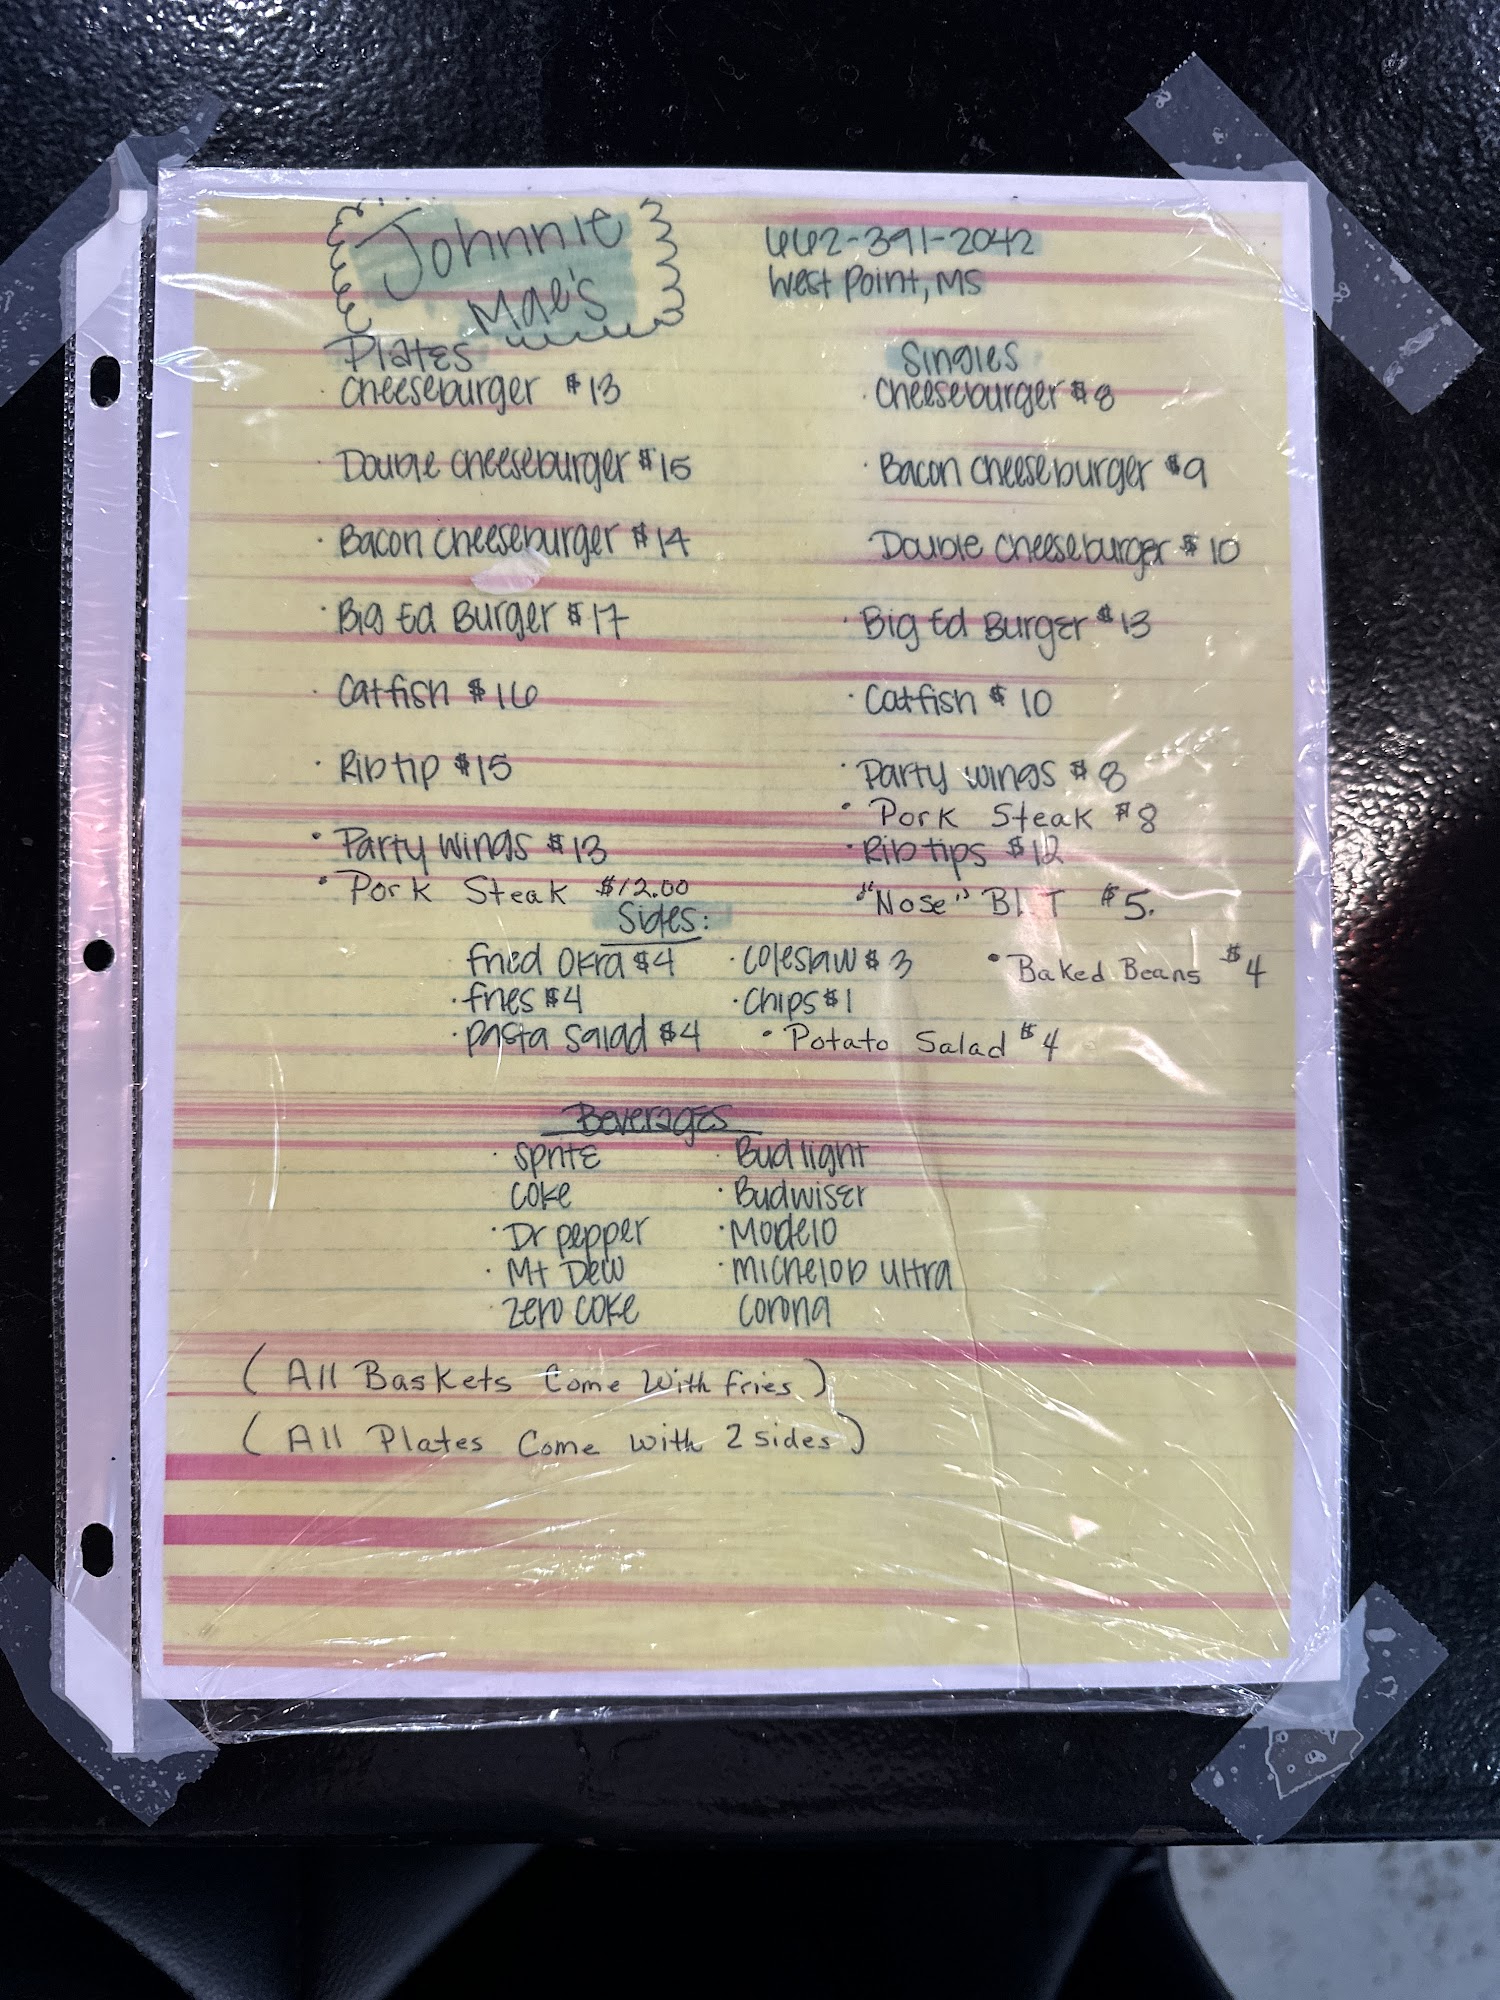 Johnnie
Mae's
662-391-2042
West Point, MS
Plates
Cheeseburger $13
Double Cheeseburger $15
Bacon Cheeseburger $14
Big Ed Burger $17
Catfish $16
Rib tip $15
Party Wings $13
Pork Steak $12.00
Singles
Cheeseburger $8
Bacon Cheeseburger $9
Double Cheeseburger $10
Big Ed Burger $13
Catfish $10
Party wings $8
Pork Steak $8
Rib tips $12
"Nose" BLT $5.
Sides:
Fried Okra $4 Coleslaw $3 Baked Beans $4
Fries $4 Chips $1
Pasta Salad $4 Potato Salad $4
Beverages
Sprite Bud light
Coke Budwiser
Dr pepper Modelo
Mt Dew Michelob Ultra
Zero Coke Corona
(All Baskets Come With Fries)
(All Plates Come With 2 sides)